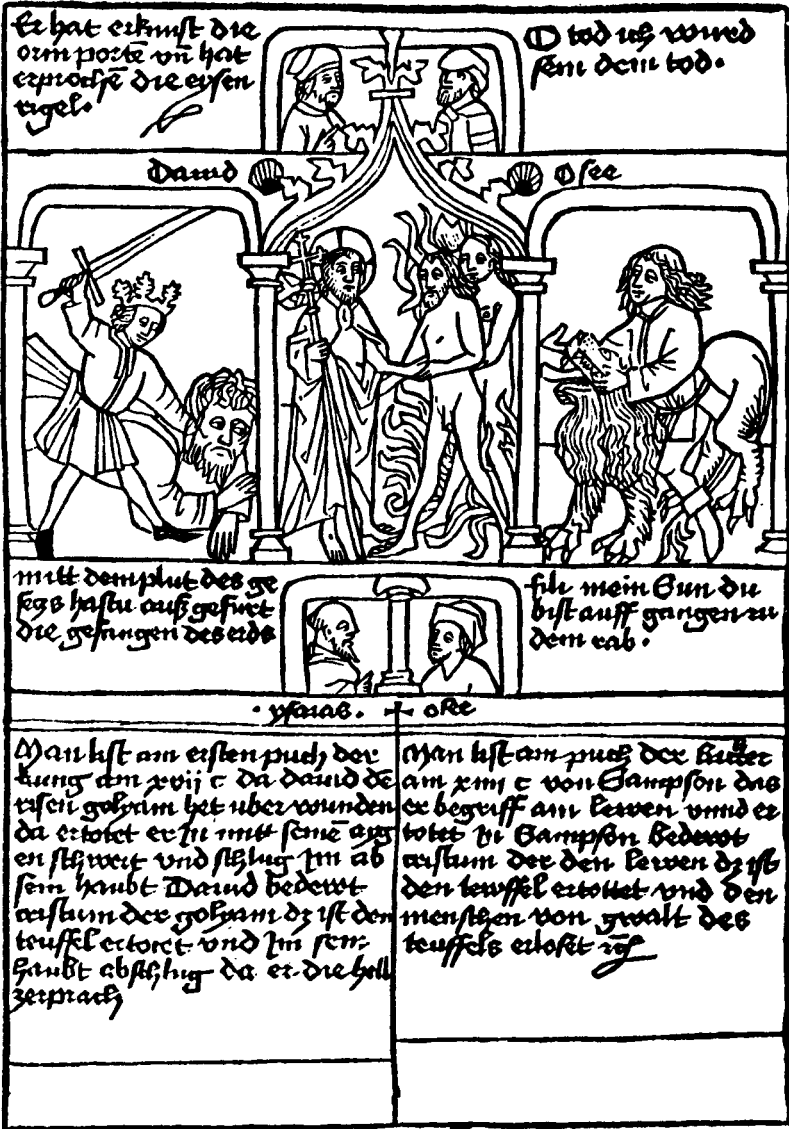 Er hat erknist die
orin porte vn hat
erproche die eysen
rigel.
O tod ich wurd
sein dein tod.
Dauid
Osee
mitt dem plut des ge
secz hastu auß gefürt
die gefangen des erds
fili mein Sun du
bist auff gangen zu
dem rab.
. ysaias .
osee
Man list am ersten puch der
kung am xvii c da dauid de
risen golyam het uber wunden
da ertotet er In mitt seine ayg
en schwert vnd schlug Im ab
sein haubt Dauid bedewt
cristum der golyam dz ist den
teuffel ertotet vnd Im sein
haubt abschlug da er die hell
zerprach
Man list am puch der Richter
am xiiii c von Sampson das
er begriff ain lewen vnnd er
totet In Sampson bedewt
cristum der den lewen dz ist
den tewffel ertottet vnd den
menschen von gwalt des
teuffels erloset